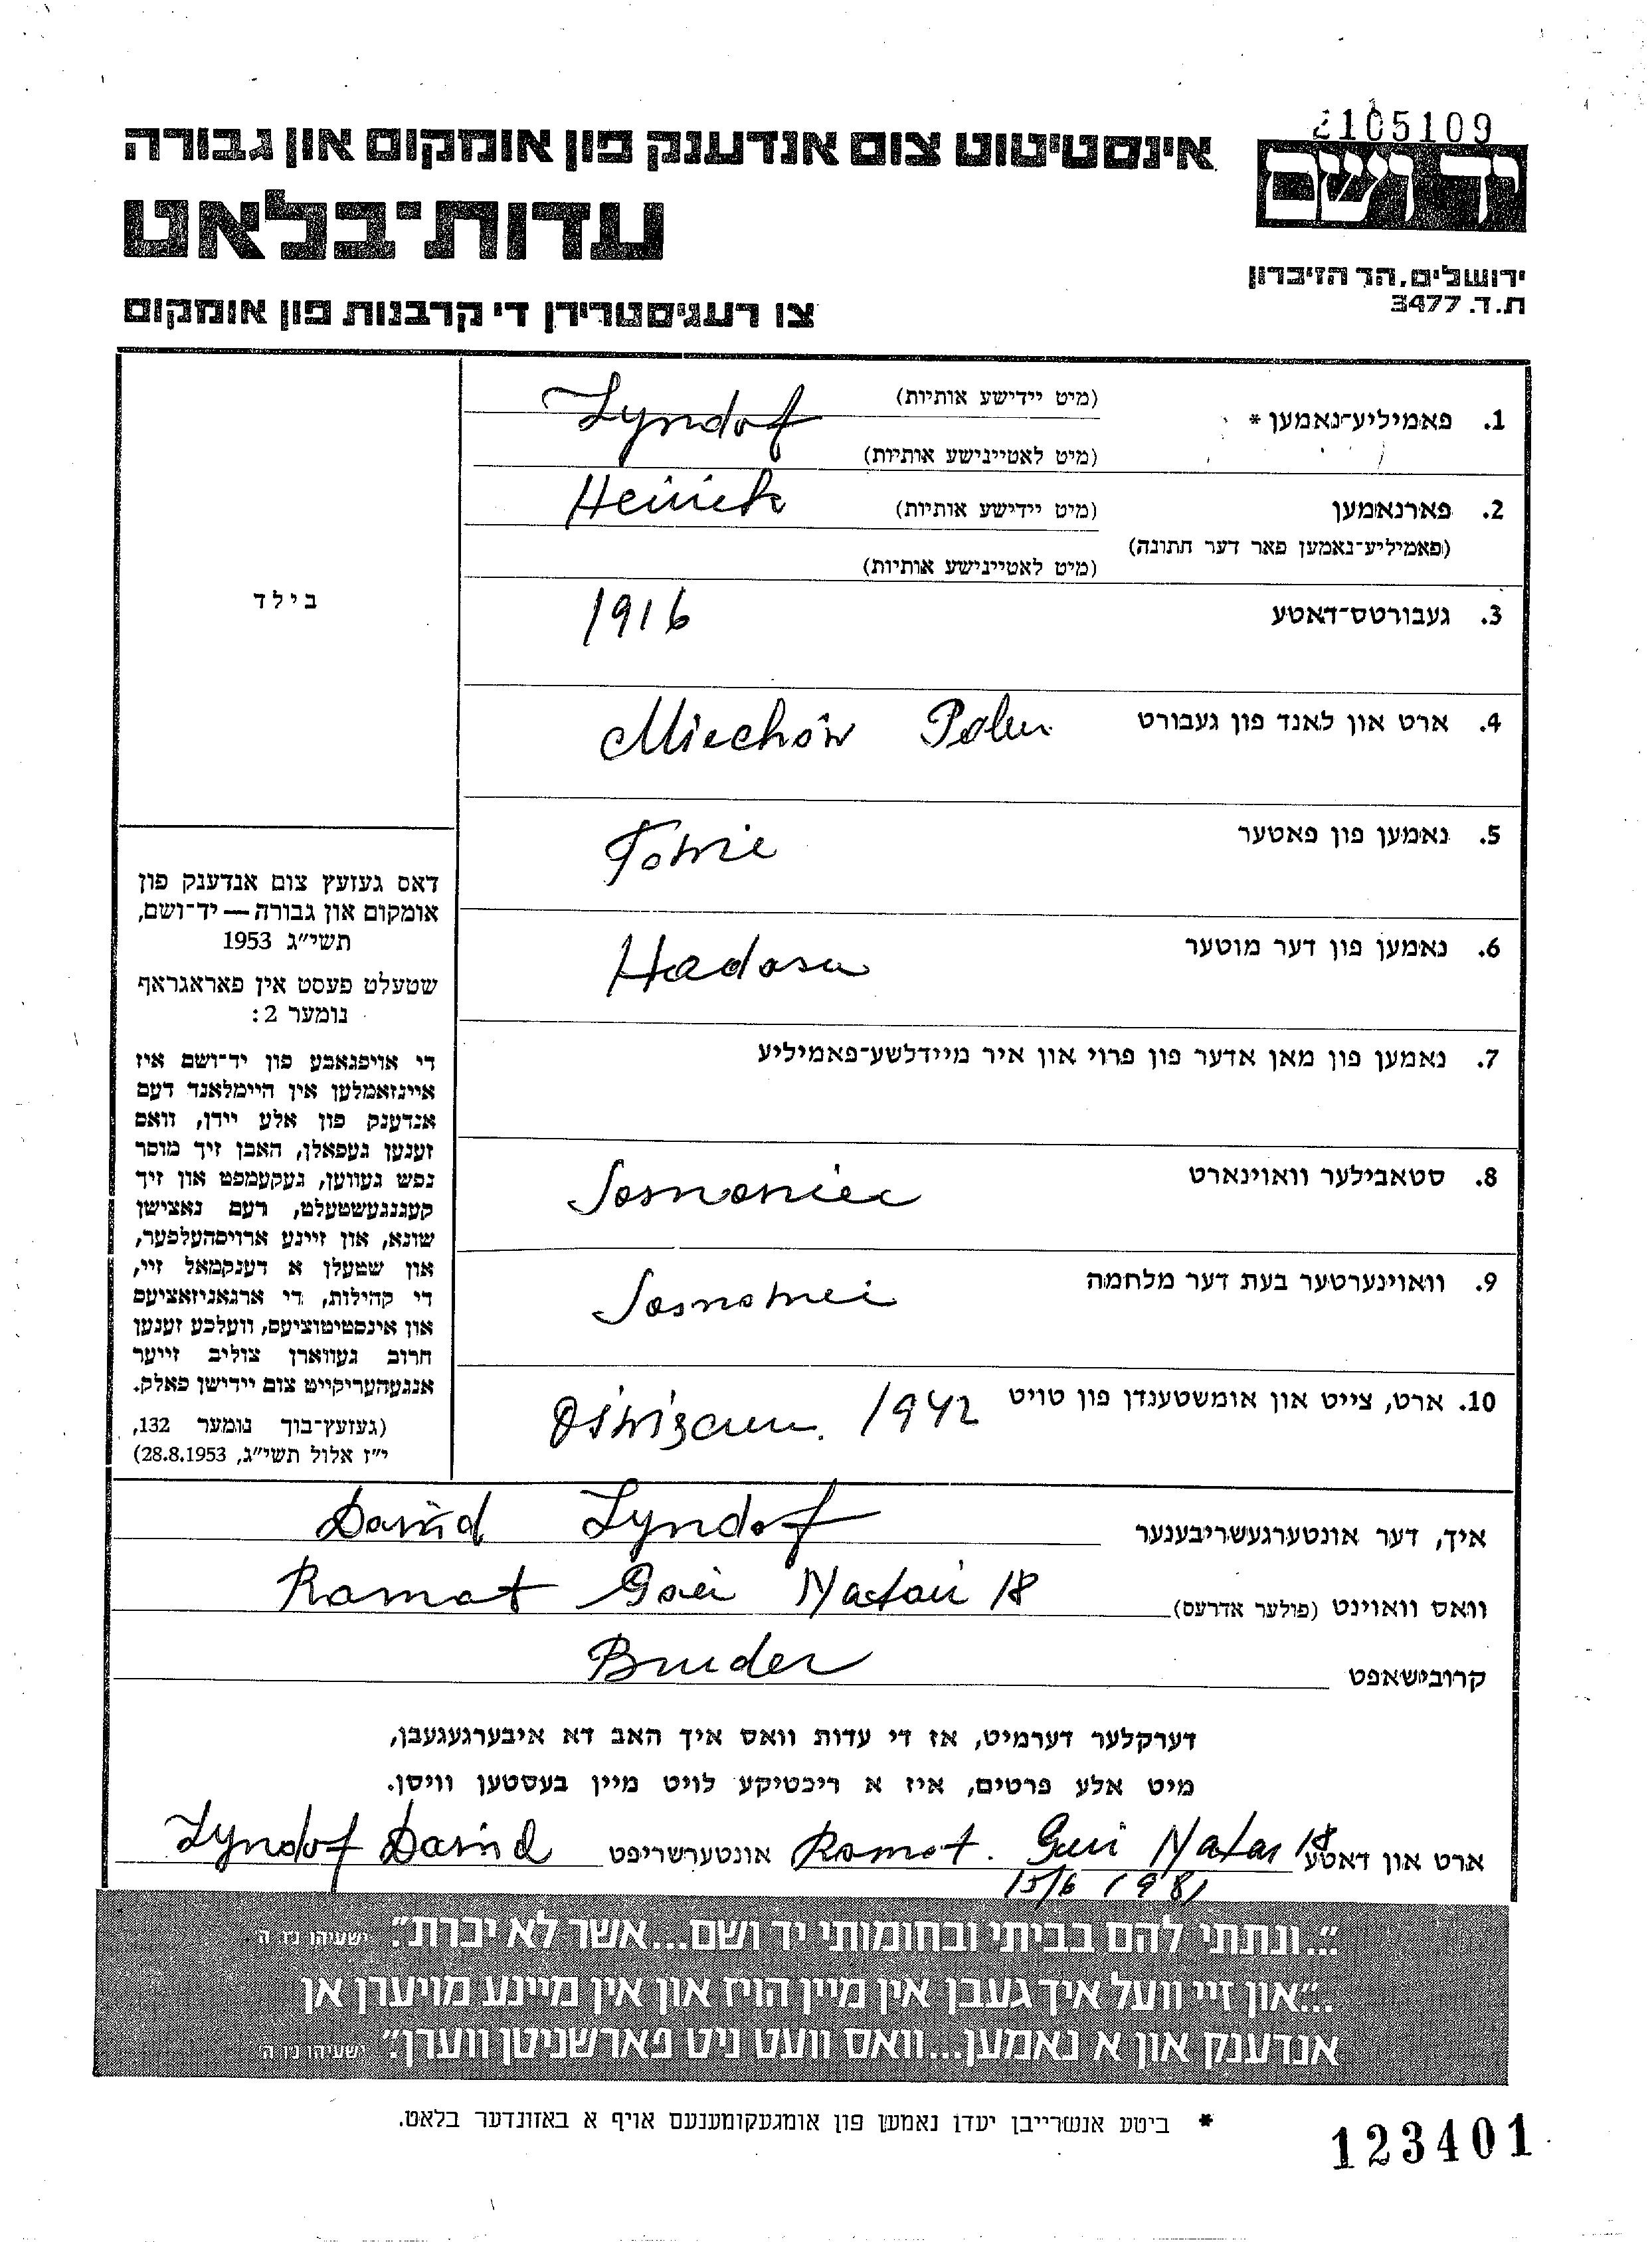 2105109
יד ושם
ירושלים, הר הזיכרון
ת.ד. 3477
אינסטיטוט צום אנדענק פון אומקום און גבורה
עדות־בלאט
צו רעגיסטרירן די קרבנות פון אומקום
בילד
דאס געזעץ צום אנדענק פון
אומקום און גבורה — יד־ושם,
תשי״ג 1953
שטעלט פעסט אין פאראגראף
נומער 2:
די אויפגאבע פון יד־ושם איז
איינזאמלען אין היימלאנד דעם
אנדענק פון אלע יידן, וואס
זענען געפאלן, האבן זיך מוסר
נפש געווען, געקעמפט און זיך
קעגנגעשטעלט, דעם נאצישן
שונא, און זיינע ארויסהעלפער,
און שטעלן א דענקמאל זיי,
די קהילות, די ארגאניזאציעס
און אינסטיטוציעס, וועלכע זענען
חרוב געווארן צוליב זייער
אנגעהעריקייט צום יידישן פאלק.
(געזעץ־בוך נומער 132,
י״ז אלול תשי״ג, 28.8.1953)
1. פאמיליע־נאמען * (מיט יידישע אותיות)
Zyndof
(מיט לאטיינישע אותיות)
2. פארנאמען (מיט יידישע אותיות) Heinich
(פאמיליע־נאמען פאר דער חתונה)
(מיט לאטיינישע אותיות)
3. געבורטס־דאטע 1916
4. ארט און לאנד פון געבורט Miechów Polen
5. נאמען פון פאטער Towie
6. נאמען פון דער מוטער Hadasa
7. נאמען פון מאן אדער פון פרוי און איר מיידלשע־פאמיליע
8. סטאבילער וואוינארט Sosnowiec
9. וואוינערטער בעת דער מלחמה
10. ארט, צייט און אומשטענדן פון טויט 1942
איך, דער אונטערגעשריבענער David Zyndof
וואס וואוינט (פולער אדרעס) Ramat 18
קרובישאפט Bruder
דערקלער דערמיט, אז די עדות וואס איך האב דא איבערגעגעבן,
מיט אלע פרטים, איז א ריכטיקע לויט מיין בעסטען וויסן.
ארט און דאטע Ramat. 18 אונטערשריפט Zyndof David
15/6 1981
״...ונתתי להם בביתי ובחומותי יד ושם...אשר לא יכרת״. ישעיהו נ״ו ה׳
״...און זיי וועל איך געבן אין מיין הויז און אין מיינע מויערן אן
אנדענק און א נאמען...וואס וועט ניט פארשניטן ווערן״. ישעיהו נ״ו ה׳
* ביטע אנשרייבן יעדן נאמען פון אומגעקומענעם אויף א באזונדער בלאט.
123401